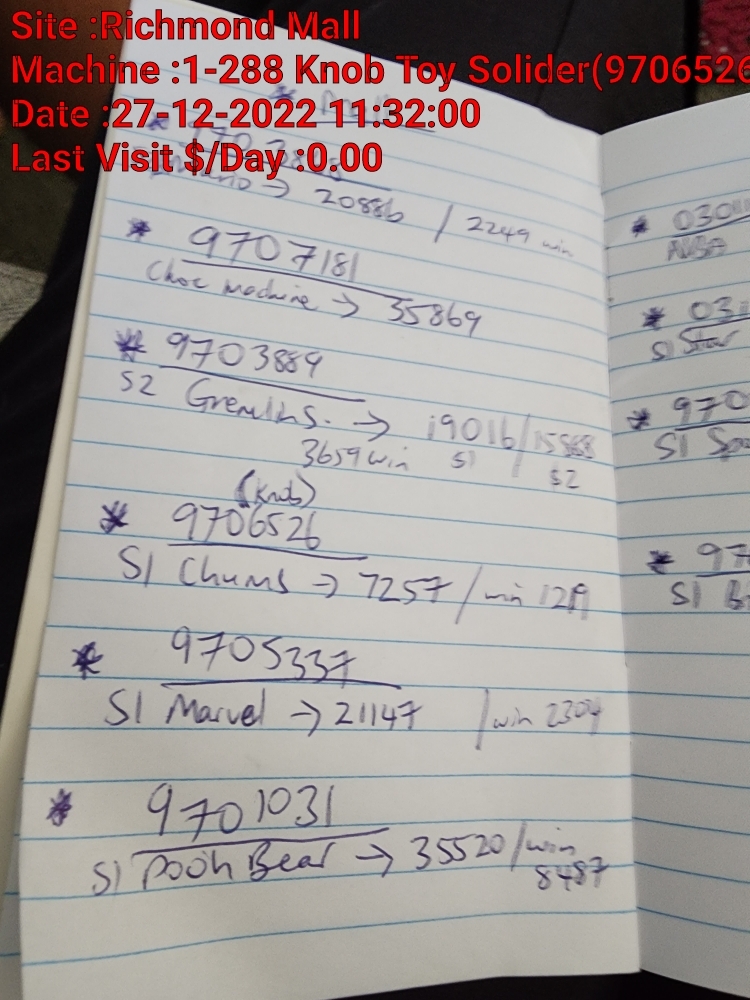 Site :Richmond Mall
Machine :1-288 Knob Toy Solider(9706526
Date :27-12-2022 11:32:00
Last Visit $/Day :0.00
→ 20886 / 2249 win
* 9707181
Choc Machine → 35869
* 9703889
S2 Gremlins. → 19016/15568
3659 win S1 / S2
(Knob)
* 9706526
S1 Chums → 7257 / win
* 9705337
S1 Marvel → 21147 / win 2304
* 9701031
S1 Pooh Bear → 35520 / win
8487
* 0301
* 03
S1 Star
* 970
S1
* 97
S1